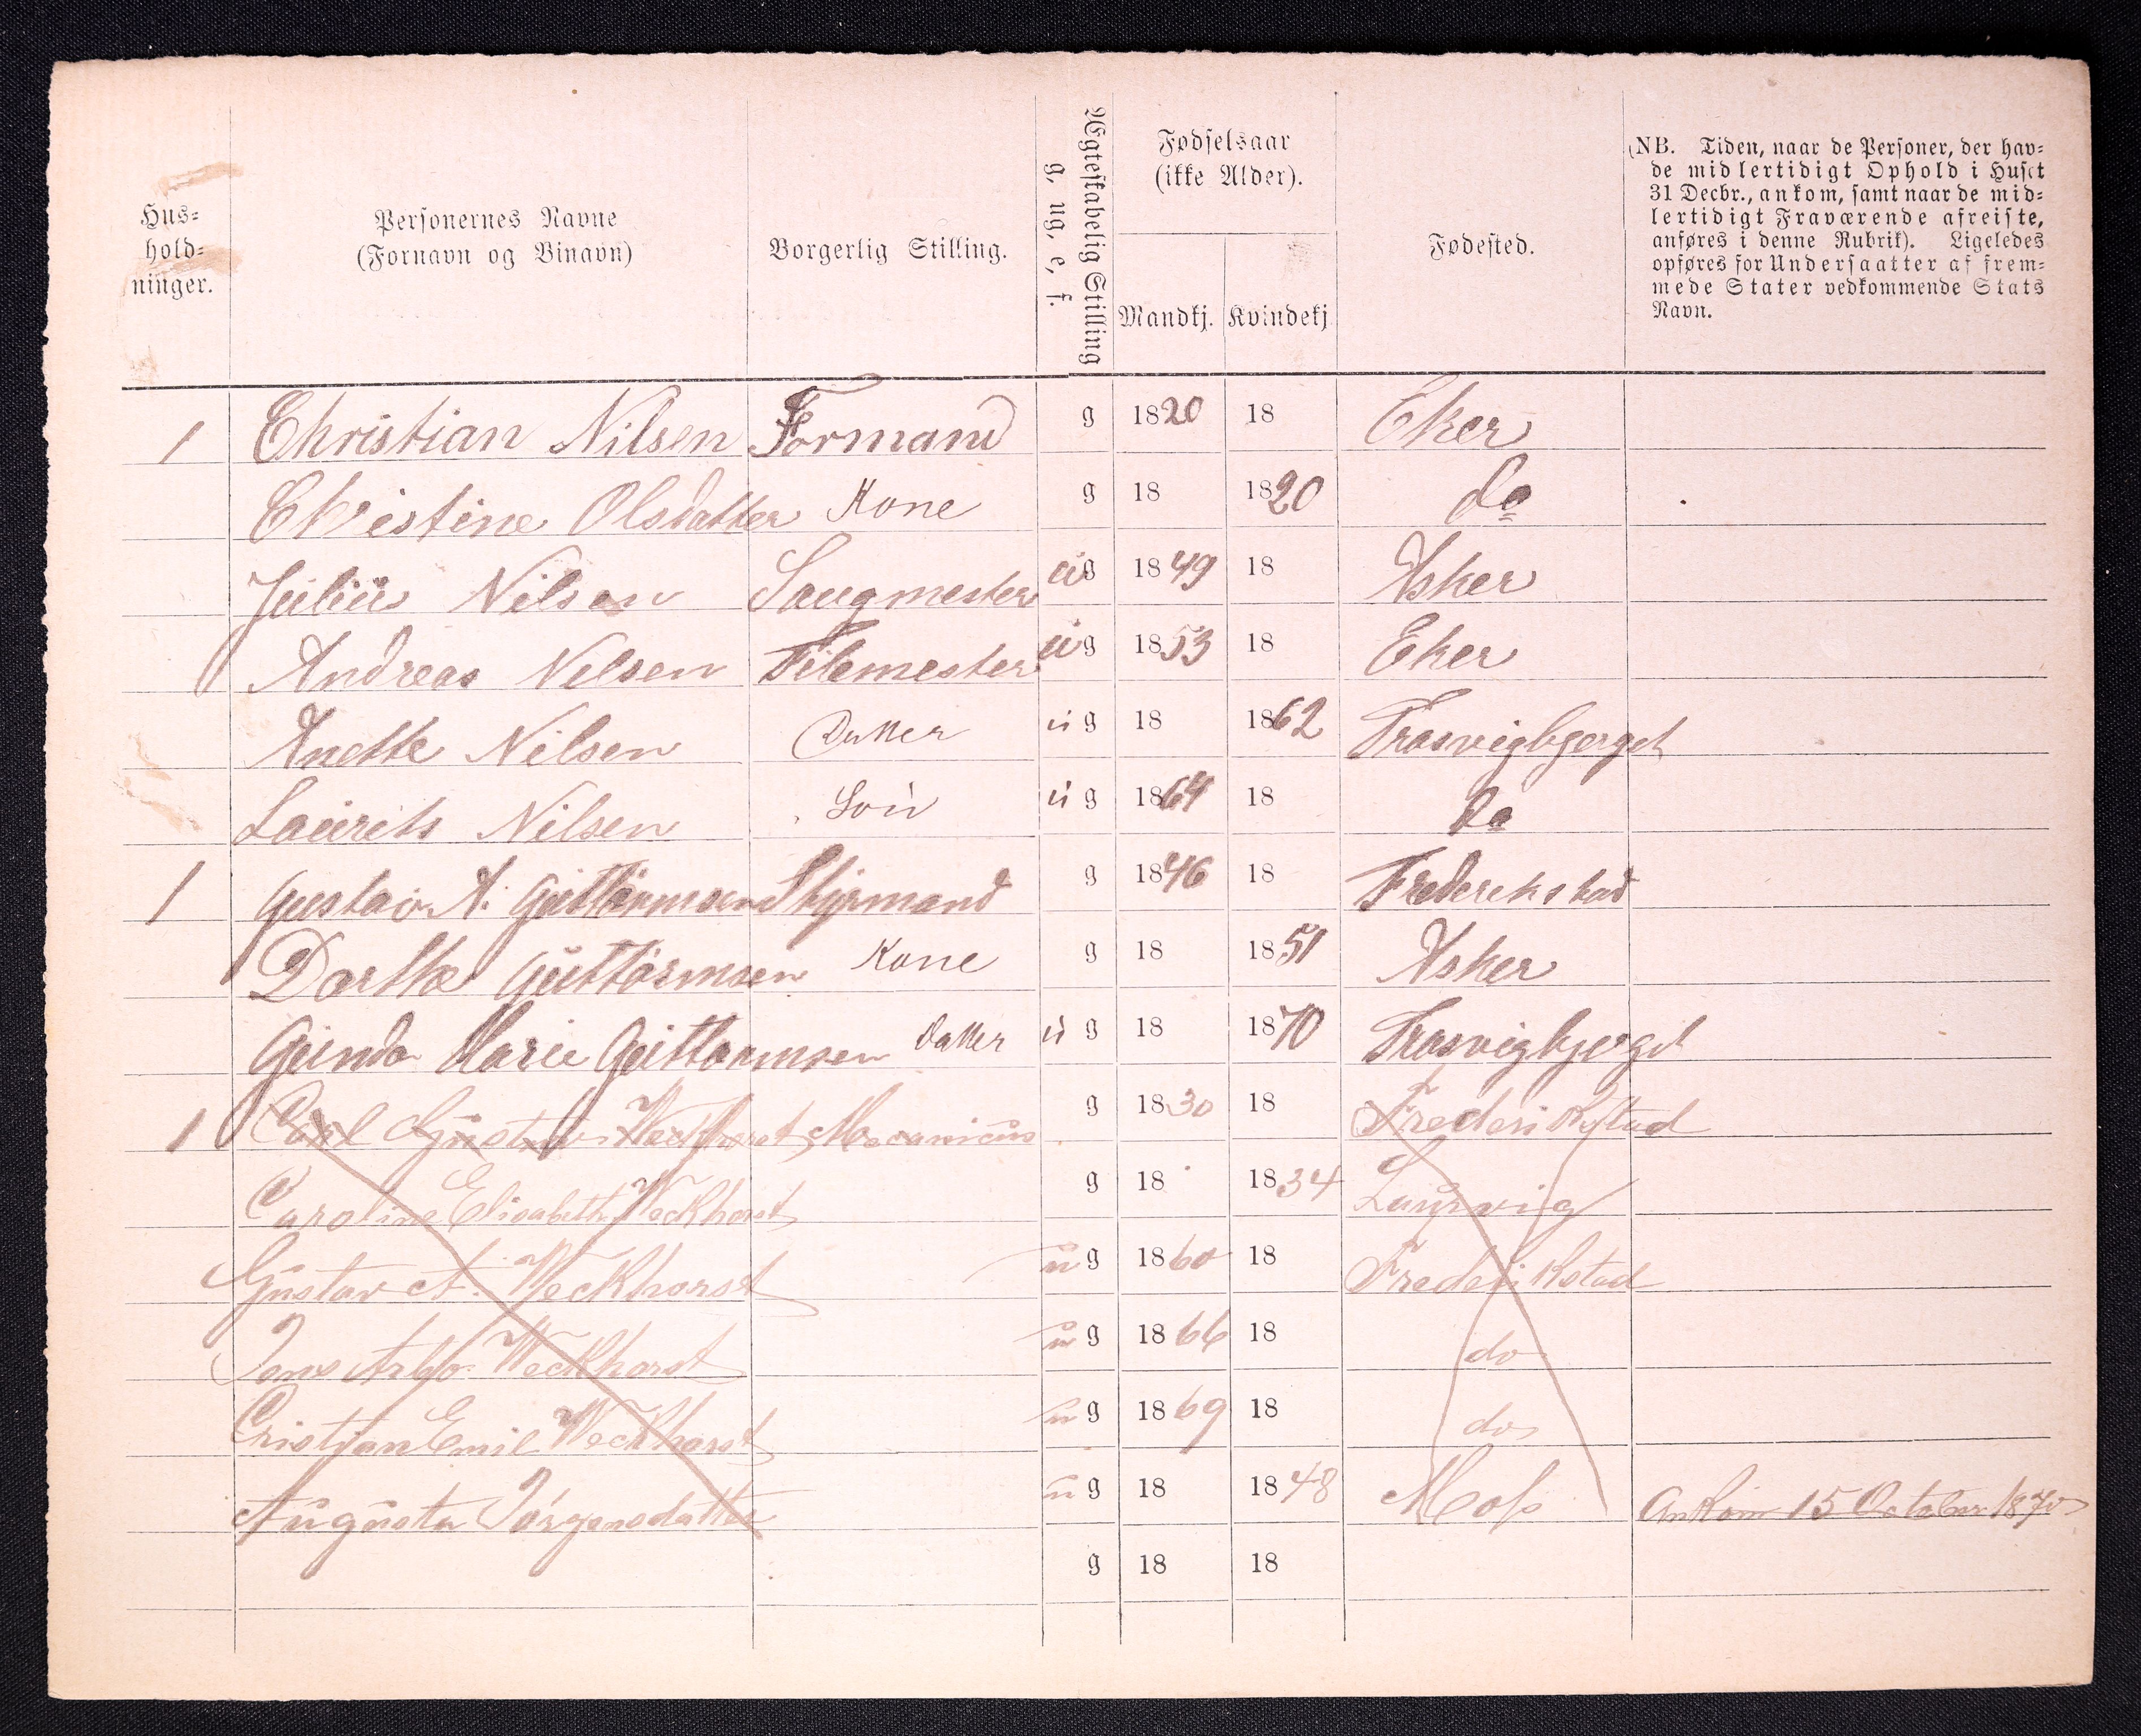 Hus-
hold-
ninger.
Personernes Navne
(Fornavn og Binavn)
Borgerlig Stilling.
Ægteskabelig Stilling
g, ug, e, f.
Fødselsaar
(ikke Alder).
Mandkj. Kvindekj
Fødested.
(NB. Tiden, naar de Personer, der hav-
de midlertidigt Ophold i Huset
31 Decbr., ankom, samt naar de mid-
lertidigt Fraværende afreiste,
anføres i denne Rubrik). Ligeledes
opføres for Undersaatter af frem-
mede Stater vedkommende Stats
Navn.
1 Christian Nilsen Formand g 1820 18 Eker
Christine Olsdatter Kone g 18 1820 do
Julius Nilsen Saugmester ug 1849 18 Asker
Andreas Nilsen Filemester ug 1853 18 Eker
Anette Nilsen Datter ug 18 1862 Trosvigbjerget
Laurits Nilsen Søn ug 1864 18 do
1 Gustav A. Guttormsen Styrmand g 1846 18 Frederikstad
Dorthe Guttormsen Kone g 18 1851 Asker
Gunda Marie Guttormsen Datter ug 18 1870 Trosvigbjerget
1 Carl Gustav Weckhorst Mecanicus g 1830 18 Frederikstad
Caroline Elisabeth Weckhorst g 18 1834 Laurvig
Gustav A. Weckhorst ug 1860 18 Frederikstad
Jens Arbo Weckhorst ug 1866 18 do
Cristian Emil Weckhorst ug 1869 18 do
Augusta Jörgensdatter ug 18 1848 Moss Ankom 15 October 1870
g 18 18